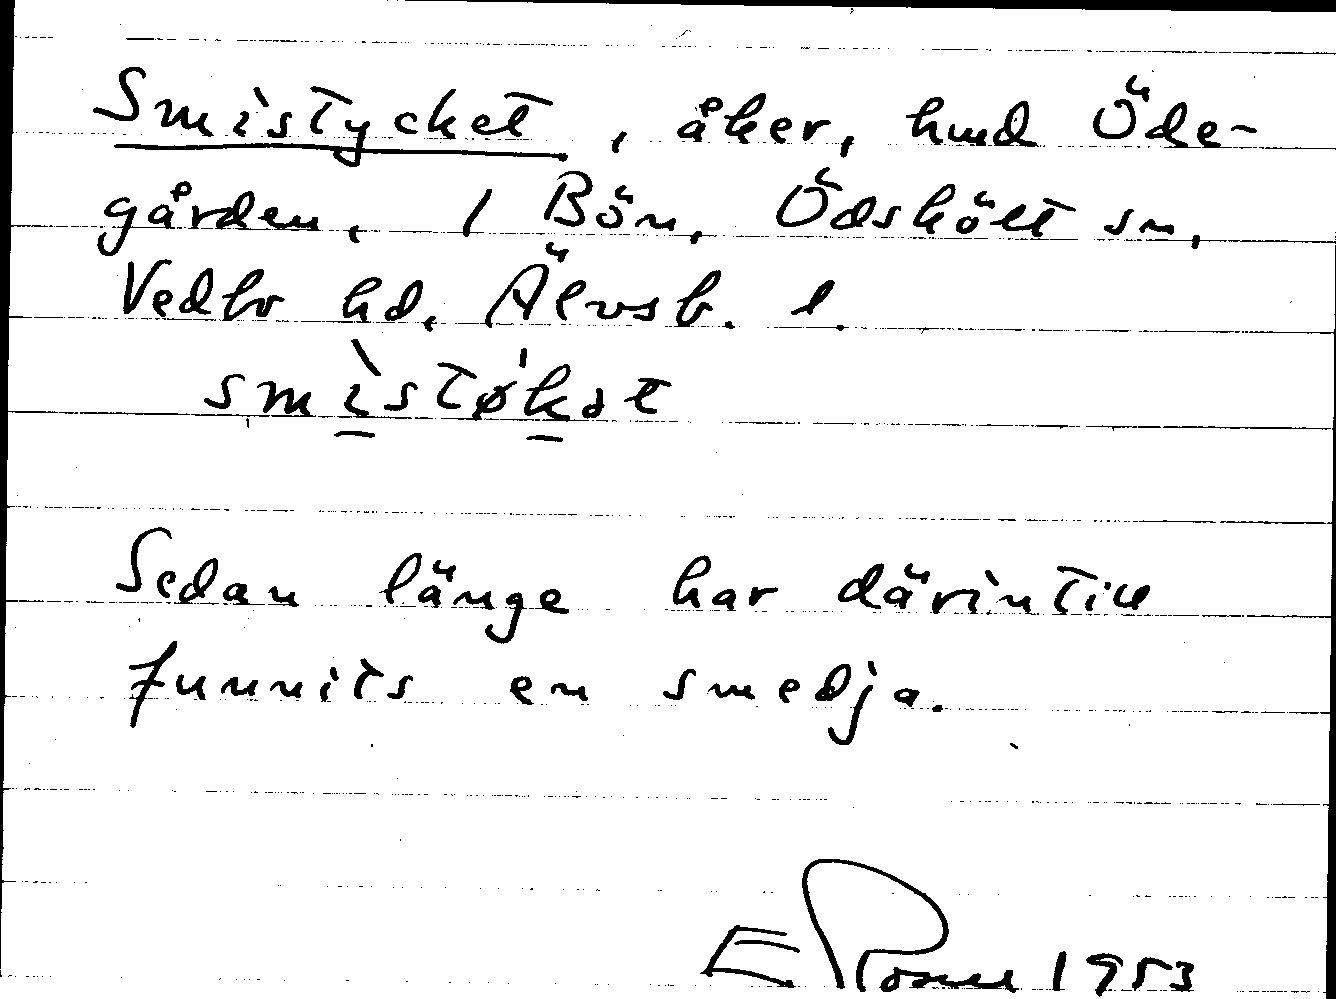 Smistycket, åker, hmd Öde-
gården, 1 Bön, Ödskölt sn,
Vedbo hd, Älvsb. l.
smìstø̍kət
Sedan länge har därintill
funnits en smedja.
E Rosell 1953